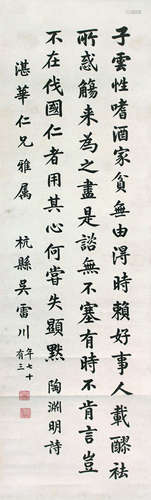 子雲性嗜酒家貧無由得時賴好事人載醪祛
所惑觴来為之盡是諮無不塞有時不肯言豈
不在伐國仁者用其心何嘗失顯默 陶淵明詩
湛華仁兄雅属 杭縣吳雷川 年七十有三